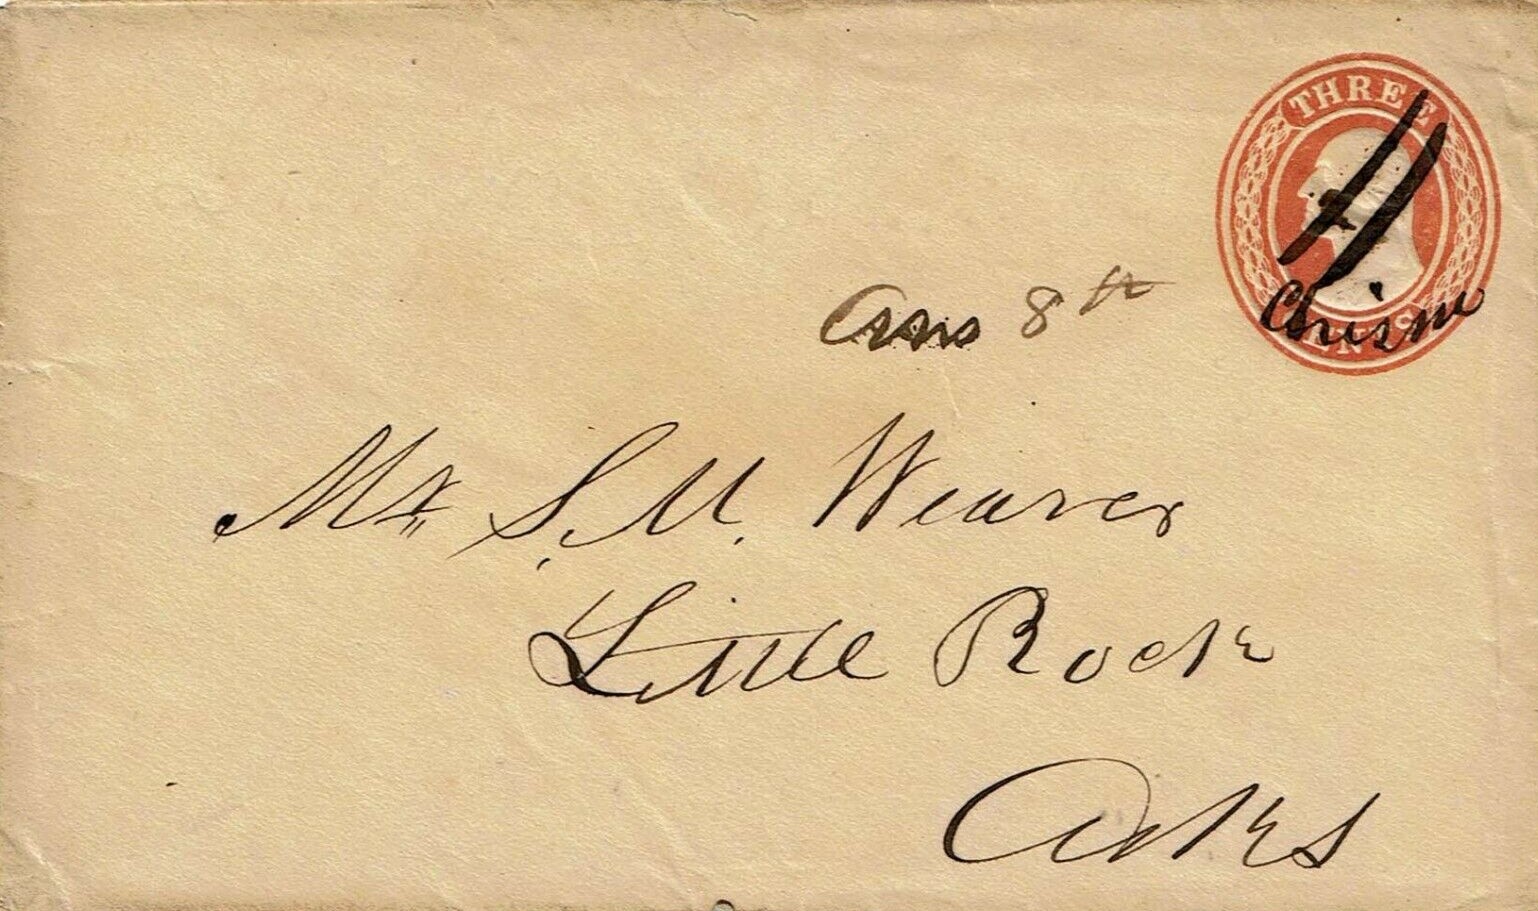 THREE
CENTS
8th
Mr. S. M. Weaver
Little Rock
Arks